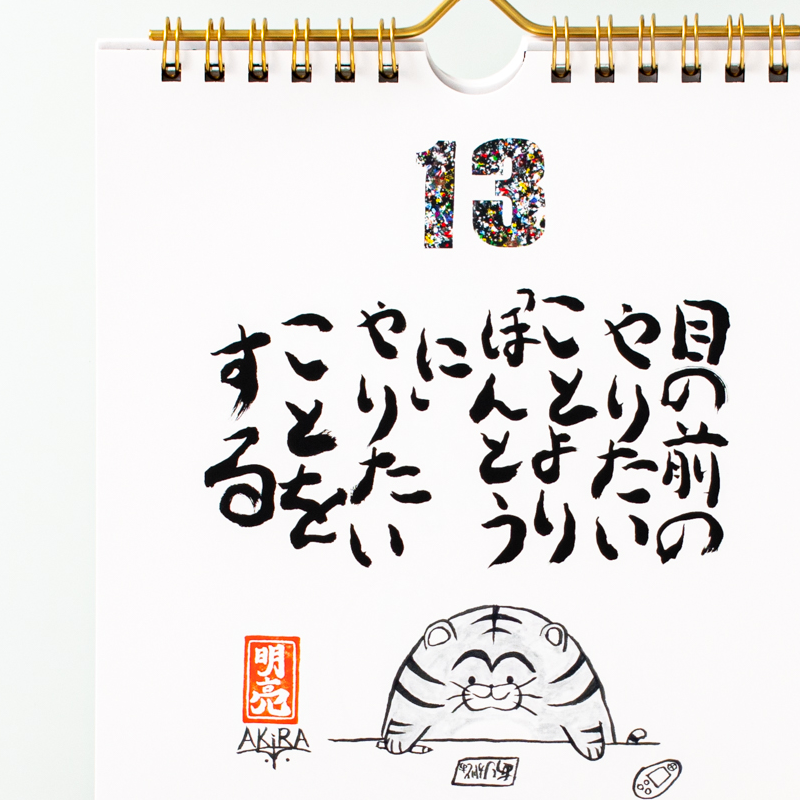 13
目の前の
やりたい
ことより
「ほんとう
に
やりたい
ことを
する
明亮
AKiRA